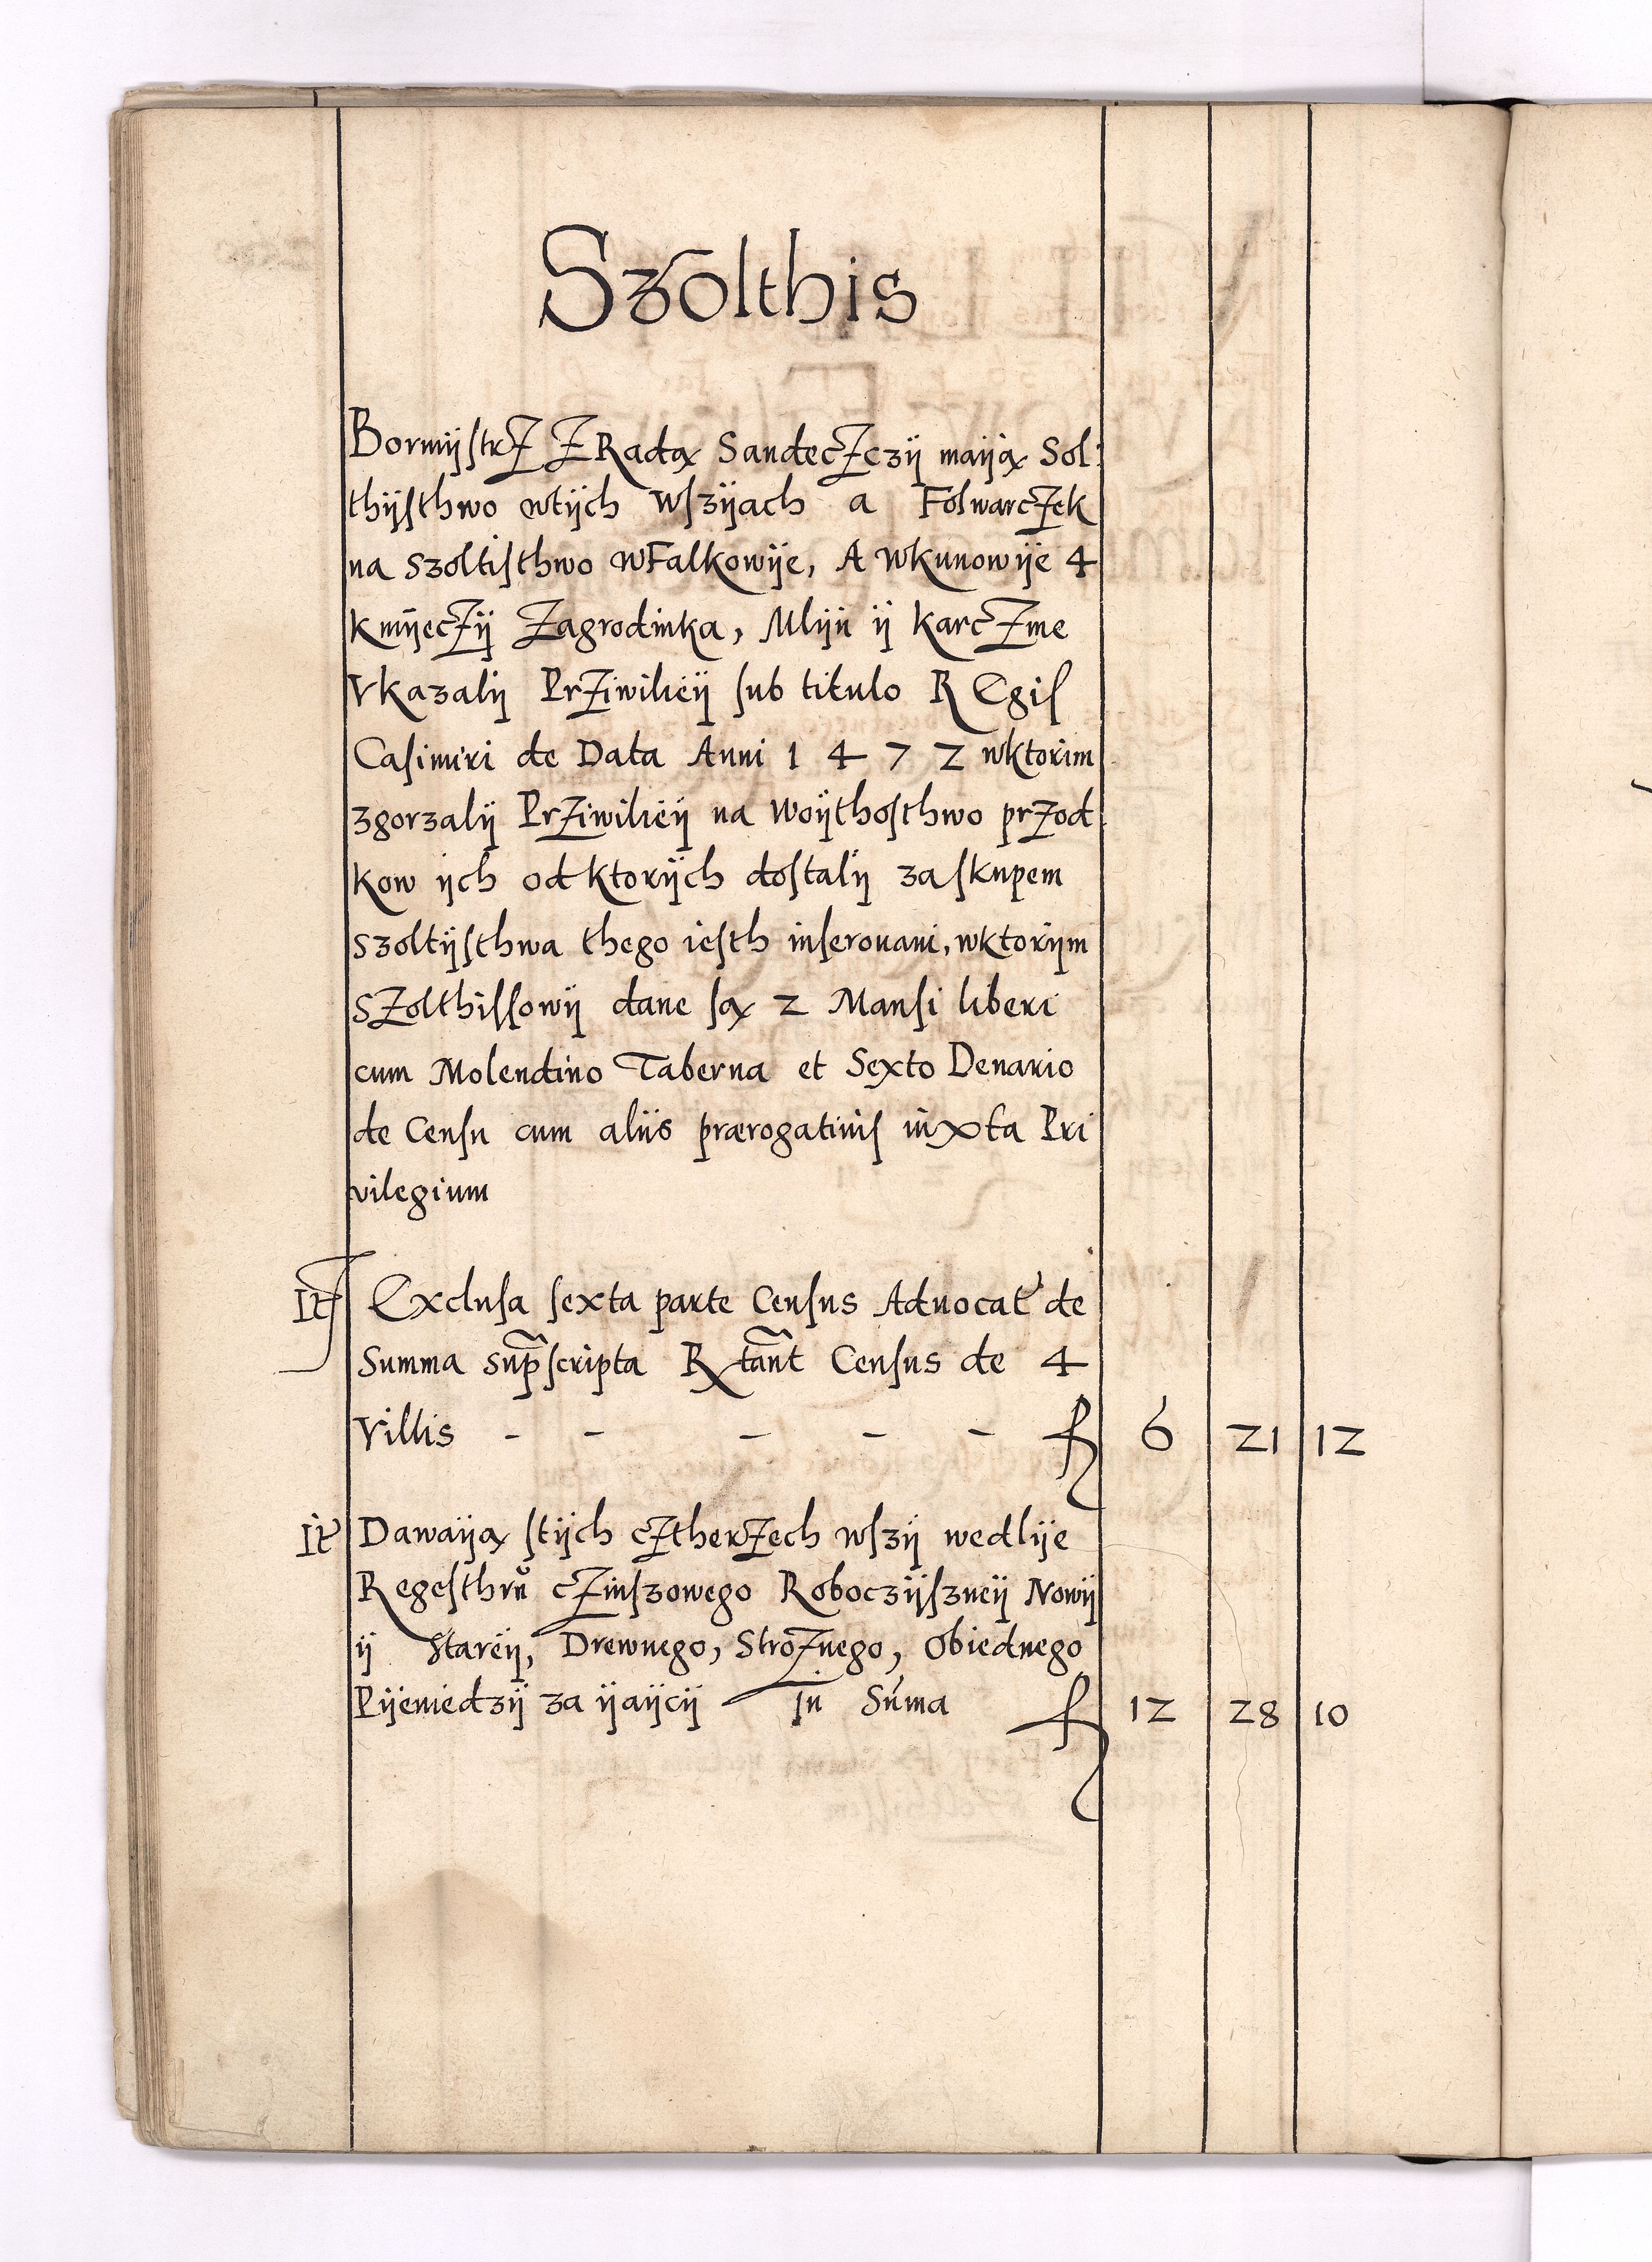 Szolthis
Bormÿſtrz z Radą Sandeczczÿ maÿą Sol:
thÿſthwo wtÿch Wſzÿach a Folwarczek
na Szoltiſthwo wFalkowÿe, A wkunowÿe 4
kmÿeczÿ Zagrodinka, Mlÿn ÿ karczme
Vkazalÿ Prziwileÿ ſub titulo REgiſ
Caſimiri de Data Anni 1 4 7 2 wktorim
zgorzalÿ Prziwileÿ na Woÿthoſthwo przod
kow ÿch od ktorÿch doſtalÿ za ſkupem
Szoltÿſthwa thego ieſth inſerouani, wktorÿm
Szolthiſſowÿ dane ſą 2 Manſi liberi
cum Molendino Taberna et Sexto Denario
de Cenſu cum aliis prærogatiuiſ iuxta Pri
vilegium
It Excluſa ſexta parte Cenſus Aduocat de
Summa sup̃ſcripta Rtãnt Cenſus de 4
Villis - - - - - f 6 21 12
It Dawaÿą ſtÿch cztherzech wſzÿ wedlÿe
Regeſthrů czinſzowego Roboczÿſzneÿ Nowÿ
ÿ Stareÿ, Drewnego, Stroznego, Obiednego
Pÿeniedzÿ za ÿaÿcÿ In Sum̃a f 12 28 10